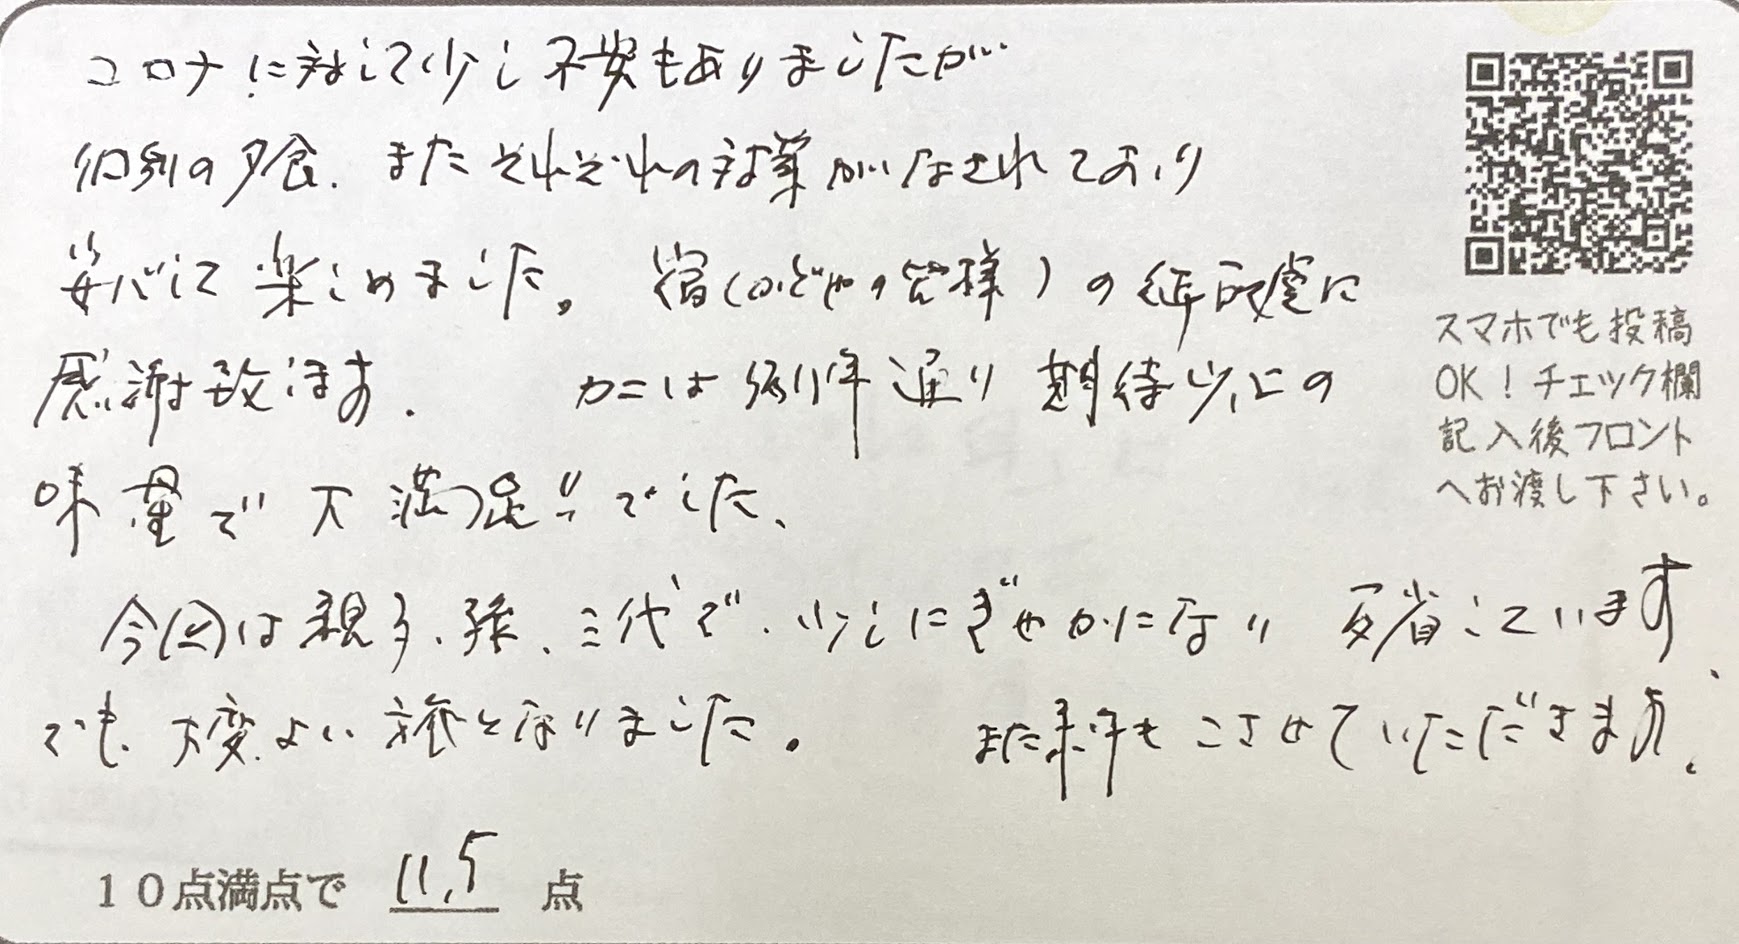 コロナに対して少し不安もありましたが
個別の夕食、またそれぞれの対策がなされており
安心して楽しめました。宿(かどやの皆様)の御配慮に
感謝致します。 カニは例年通り期待以上の
味 量で大満足!!でした、
今回は親子、孫、三代で、少しにぎやかになり 反省しています、
でも、大変よい旅となりました。 また来年もこさせていただきます、
10点満点で 11.5 点
スマホでも投稿
OK！チェック欄
記入後フロント
へお渡し下さい。